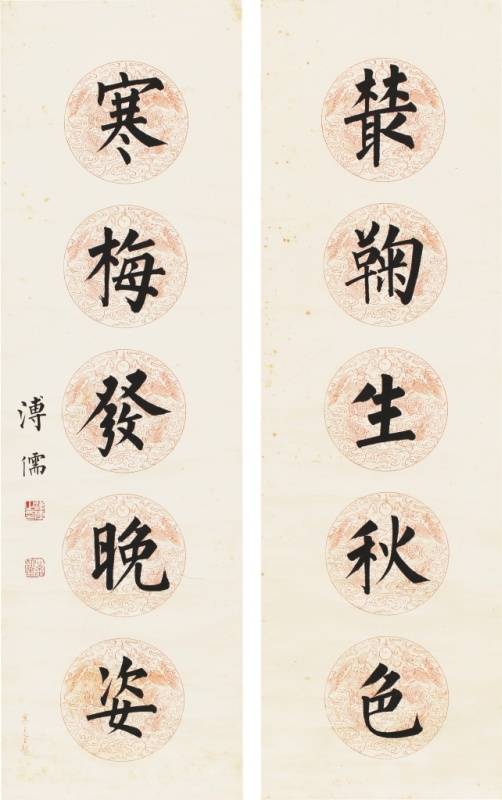 藂鞠生秋色
寒梅發晚姿
溥儒